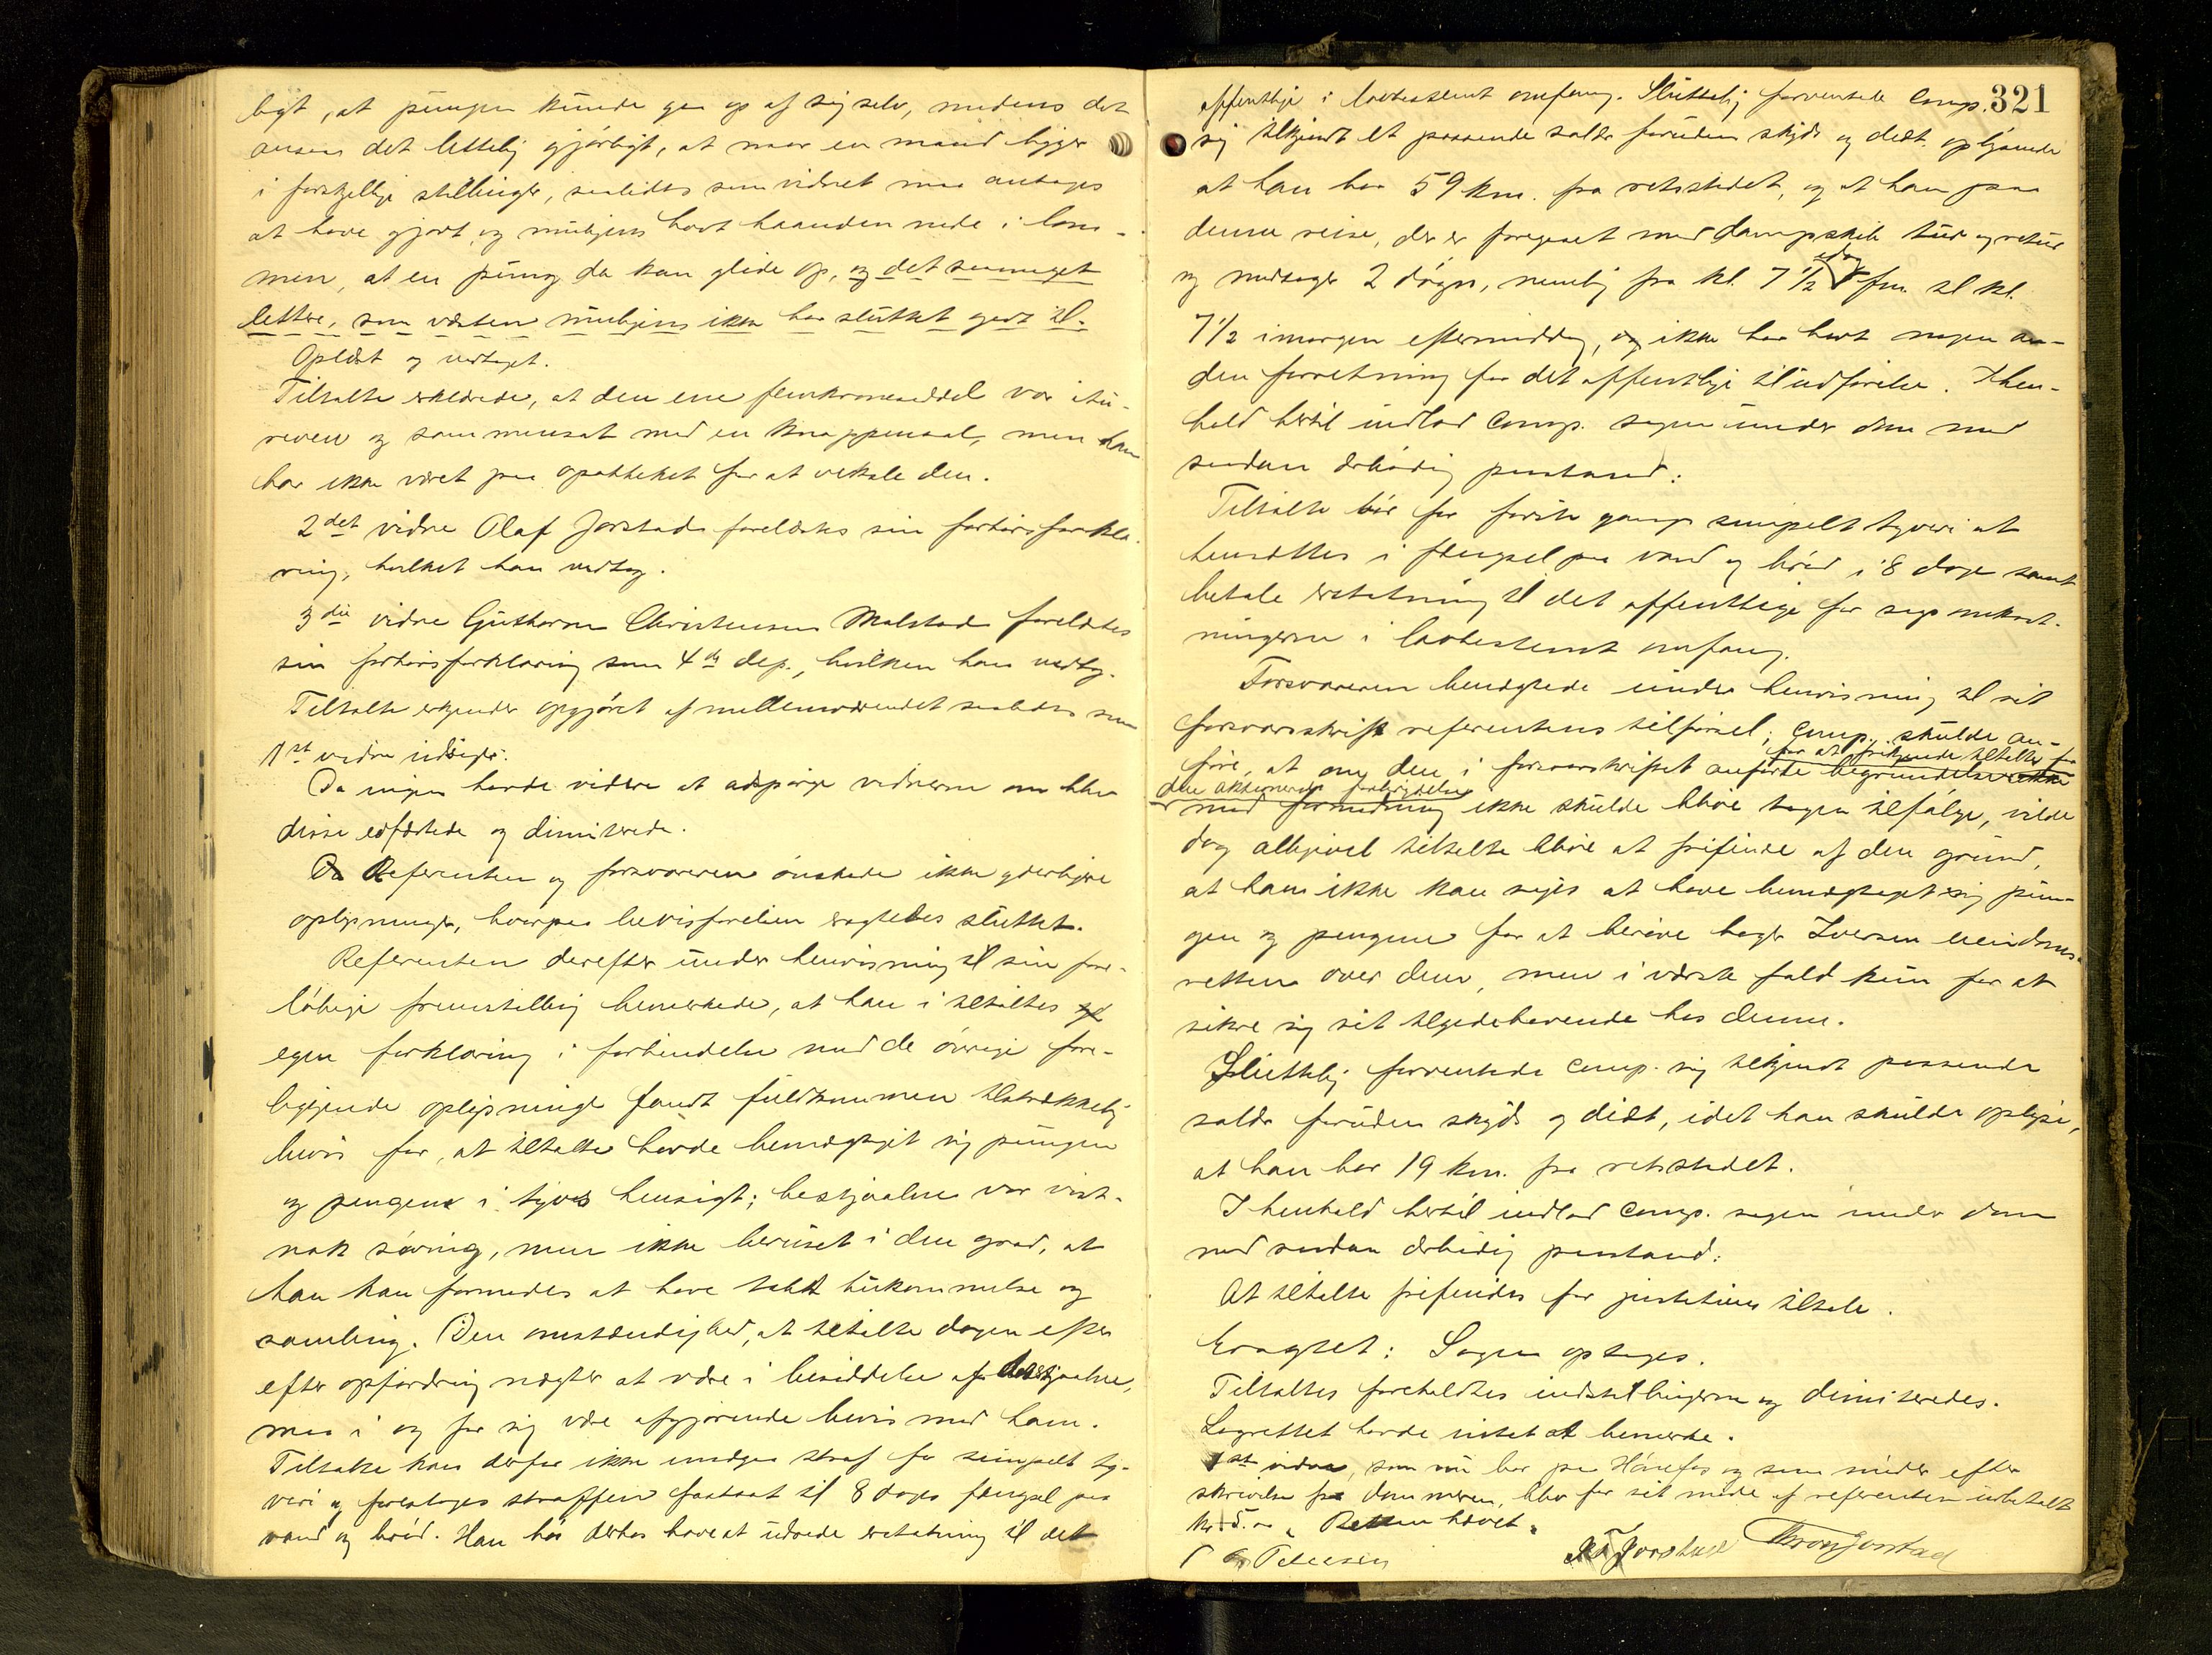 ligt, at pungen kunde gaa op af sig selv, medens det
ansees det lettelig gjørligt, at naar en mand ligger
i forskjellige stillinger, saaledes som vidnet maa antages
at have gjort, og muligens havt haanden nede i lom-
men, at en pung da kan glide op, og det saameget
lettere, som væsken muligens ikke har sluttet godt til.
Oplæst og vedtaget.
Tiltalte erklærede, at den ene femkroneseddel var itu-
reven og sammensat med en knappenaal, men han
har ikke været paa apotheket for at veksle den.
2det vidne Olaf Jorstad forelæstes sin forhørsforkla-
ring, hvilket han vedtog.
3die vidne Guthorm Christensen Malstad forelæstes
sin forhørsforklaring som 4de dep., hvilken han vedtog.
Tiltalte erkjender opgjøret af mellemværendet saaledes som
1st vidne udsiger.
Da ingen havde videre at adspørge vidnerne om blev
disse edfæstede og dimiterede.
Referenten og forsvareren ønskede ikke yderligere
oplysninger, hvorpaa bevisførelsen eragtedes sluttet.
Referenten derefter under henvisning til sin fore-
løbige fremstilling bemerkede, at han i tiltaltes
egen forklaring i forbindelse med de øvrige fore-
liggende oplysninger fandt fuldkommen tilstrækkelig
bevis for, at tiltalte havde bemægtiget sig pungen
og pengene i tyvs hensigt; bestjaalne var vist-
nok søvnig, men ikke beruset i den grad, at
han kan formodes at have tabt hukommelse og
samling. Den omstændighed, at tiltalte dagen efter
efter opfordring nægter at være i besiddelse af det stjaalne,
maa i og for sig være afgjørende bevis mod ham.
Tiltalte kan derfor ikke undgaa straf for simpelt ty-
veri og foreslaaes straffen fastsat til 8 dages fængsel paa
vand og brød. Han bør derhos have at udrede erstatning til det
321
offentlige i lovbestemt omfang. Sluttelig forventede Comp.
sig tilkjendt et passende salær foruden skyds og diæt, oplysende
at han bor 59 km. fra retsstedet, og at han paa
denne reise, der er foregaaet med dampskib tur og retur
og medtager 2 døgn, nemlig fra kl. 7 1/2 idag fm. til kl.
7 1/2 imorgen eftermiddag, og ikke har havt nogen an-
den forretning for det offentlige til udførelse. I hen-
hold hertil indlod Comp. sagen under dom med
saadan ærbødig paastand:
Tiltalte bør for første gangs simpelt tyveri at
hensættes i fængsel paa vand og brød i 8 dage samt
betale erstatning til det offentlige for sagsomkost-
ningerne i lovbestemt omfang.
Forsvareren benægtede under henvisning til sit
forsvarsskrift referentens tilførsel; Comp. skulde an-
for at frikjende tiltalte for
føre, at om den i forsvarsskriftet anførte begrundelse
den aktionerede forbrydelse
ikke skulde blive tagen tilfølge, vilde
dog alligevel tiltalte blive at frifinde af den grund,
at han ikke kan siges at have bemægtiget sig pun-
gen og pengene for at berøve bager Iversen eiendoms-
retten over dem, men i værste fald kun for at
sikre sig sit tilgodehavende hos denne.
Sluttelig forventede Comp. sig tilkjendt passende
salær foruden skyds og diæt, idet han skulde oplyse,
at han bor 19 km. fra retsstedet.
I henhold hertil indlod Comp. sagen under dom
med saadan ærbødig paastand:
At tiltalte frifindes for justitiens tiltale.
Eragtet: Sagen optages.
Tiltaltes foreholdtes indstillingerne og dimiteredes.
Lagrettet havde intet at bemerke.
1st vidne, som nu bor paa Hønefos og som møder efter
skrivelse fra dommeren, blev for sit møde af referenten udbetalt
kr. 5.00. Retten hævet.
Petersen
Jorstad